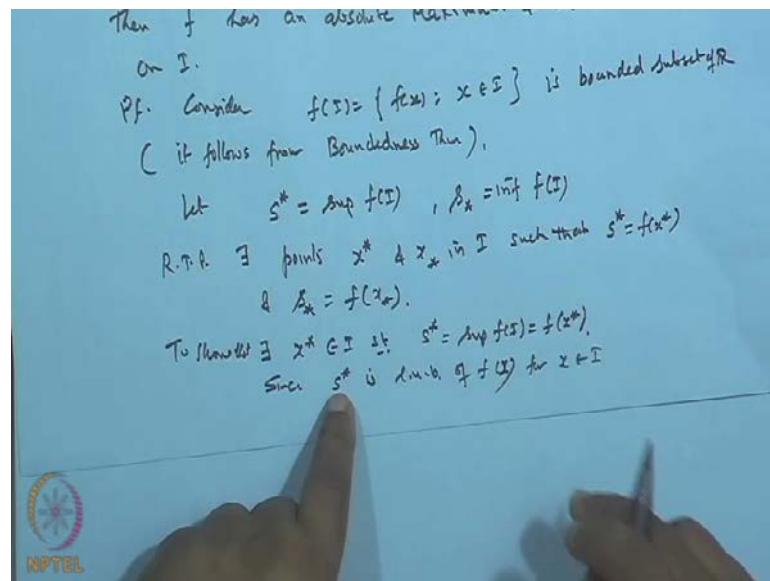 Then f has an absolute
on I.
Pf. Consider f(I) = { f(x) : x ∈ I } is bounded subset of R
( it follows from Boundedness Thm ).
Let s* = sup f(I) , s_* = inf f(I)
R.T.P. ∃ points x* & x_* in I such that s* = f(x*)
& s_* = f(x_*).
To show that ∃ x* ∈ I st. s* = sup f(I) = f(x*).
Since s* is l.u.b. of f(I) for x ∈ I
NPTEL